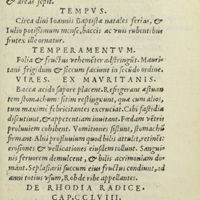 & areas sepit.
TEMPVS.
Circa diui Ioannis Baptistæ natales ferias, &
Iulio potissimum mense, baccis ac vuis rubentibus
frutex ille ornatur.
TEMPERAMENTVM.
Folia & fructus vehemẽter adstringũt. Mauri-
tani frigidum & siccum faciunt in secũdo ordine.
VIRES. EX MAVRITANIS.
Bacca acido sapore placent. Refrigerant æstuan
tem stomachum: sitim restinguunt, quæ cum alios,
tum maxime febricitantes excruciat. Cibi fastidia
discutiunt, & appetentiam inuitant. Fœdum vẽtris
profluuium cohibent. Vomitiones sistunt, stomachũ
firmant. Alui profluuium quod bilis attulit, reti&
erosiones & vellicationes eiusdem tollunt. Sangui-
nis feruorem demulcent, & bilis acrimoniam do-
mant. Seplasiarij succum eius fructus condiunt, ad
anni totius vsum, Robde vibe appellantes.
DE RHODIA RADICE.
CAP. CCLVIII.